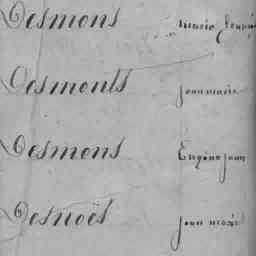 Desmons Marie Louise
Desmonts Jean marie
Desmons Eugène Jean
Desnoës Jean marie